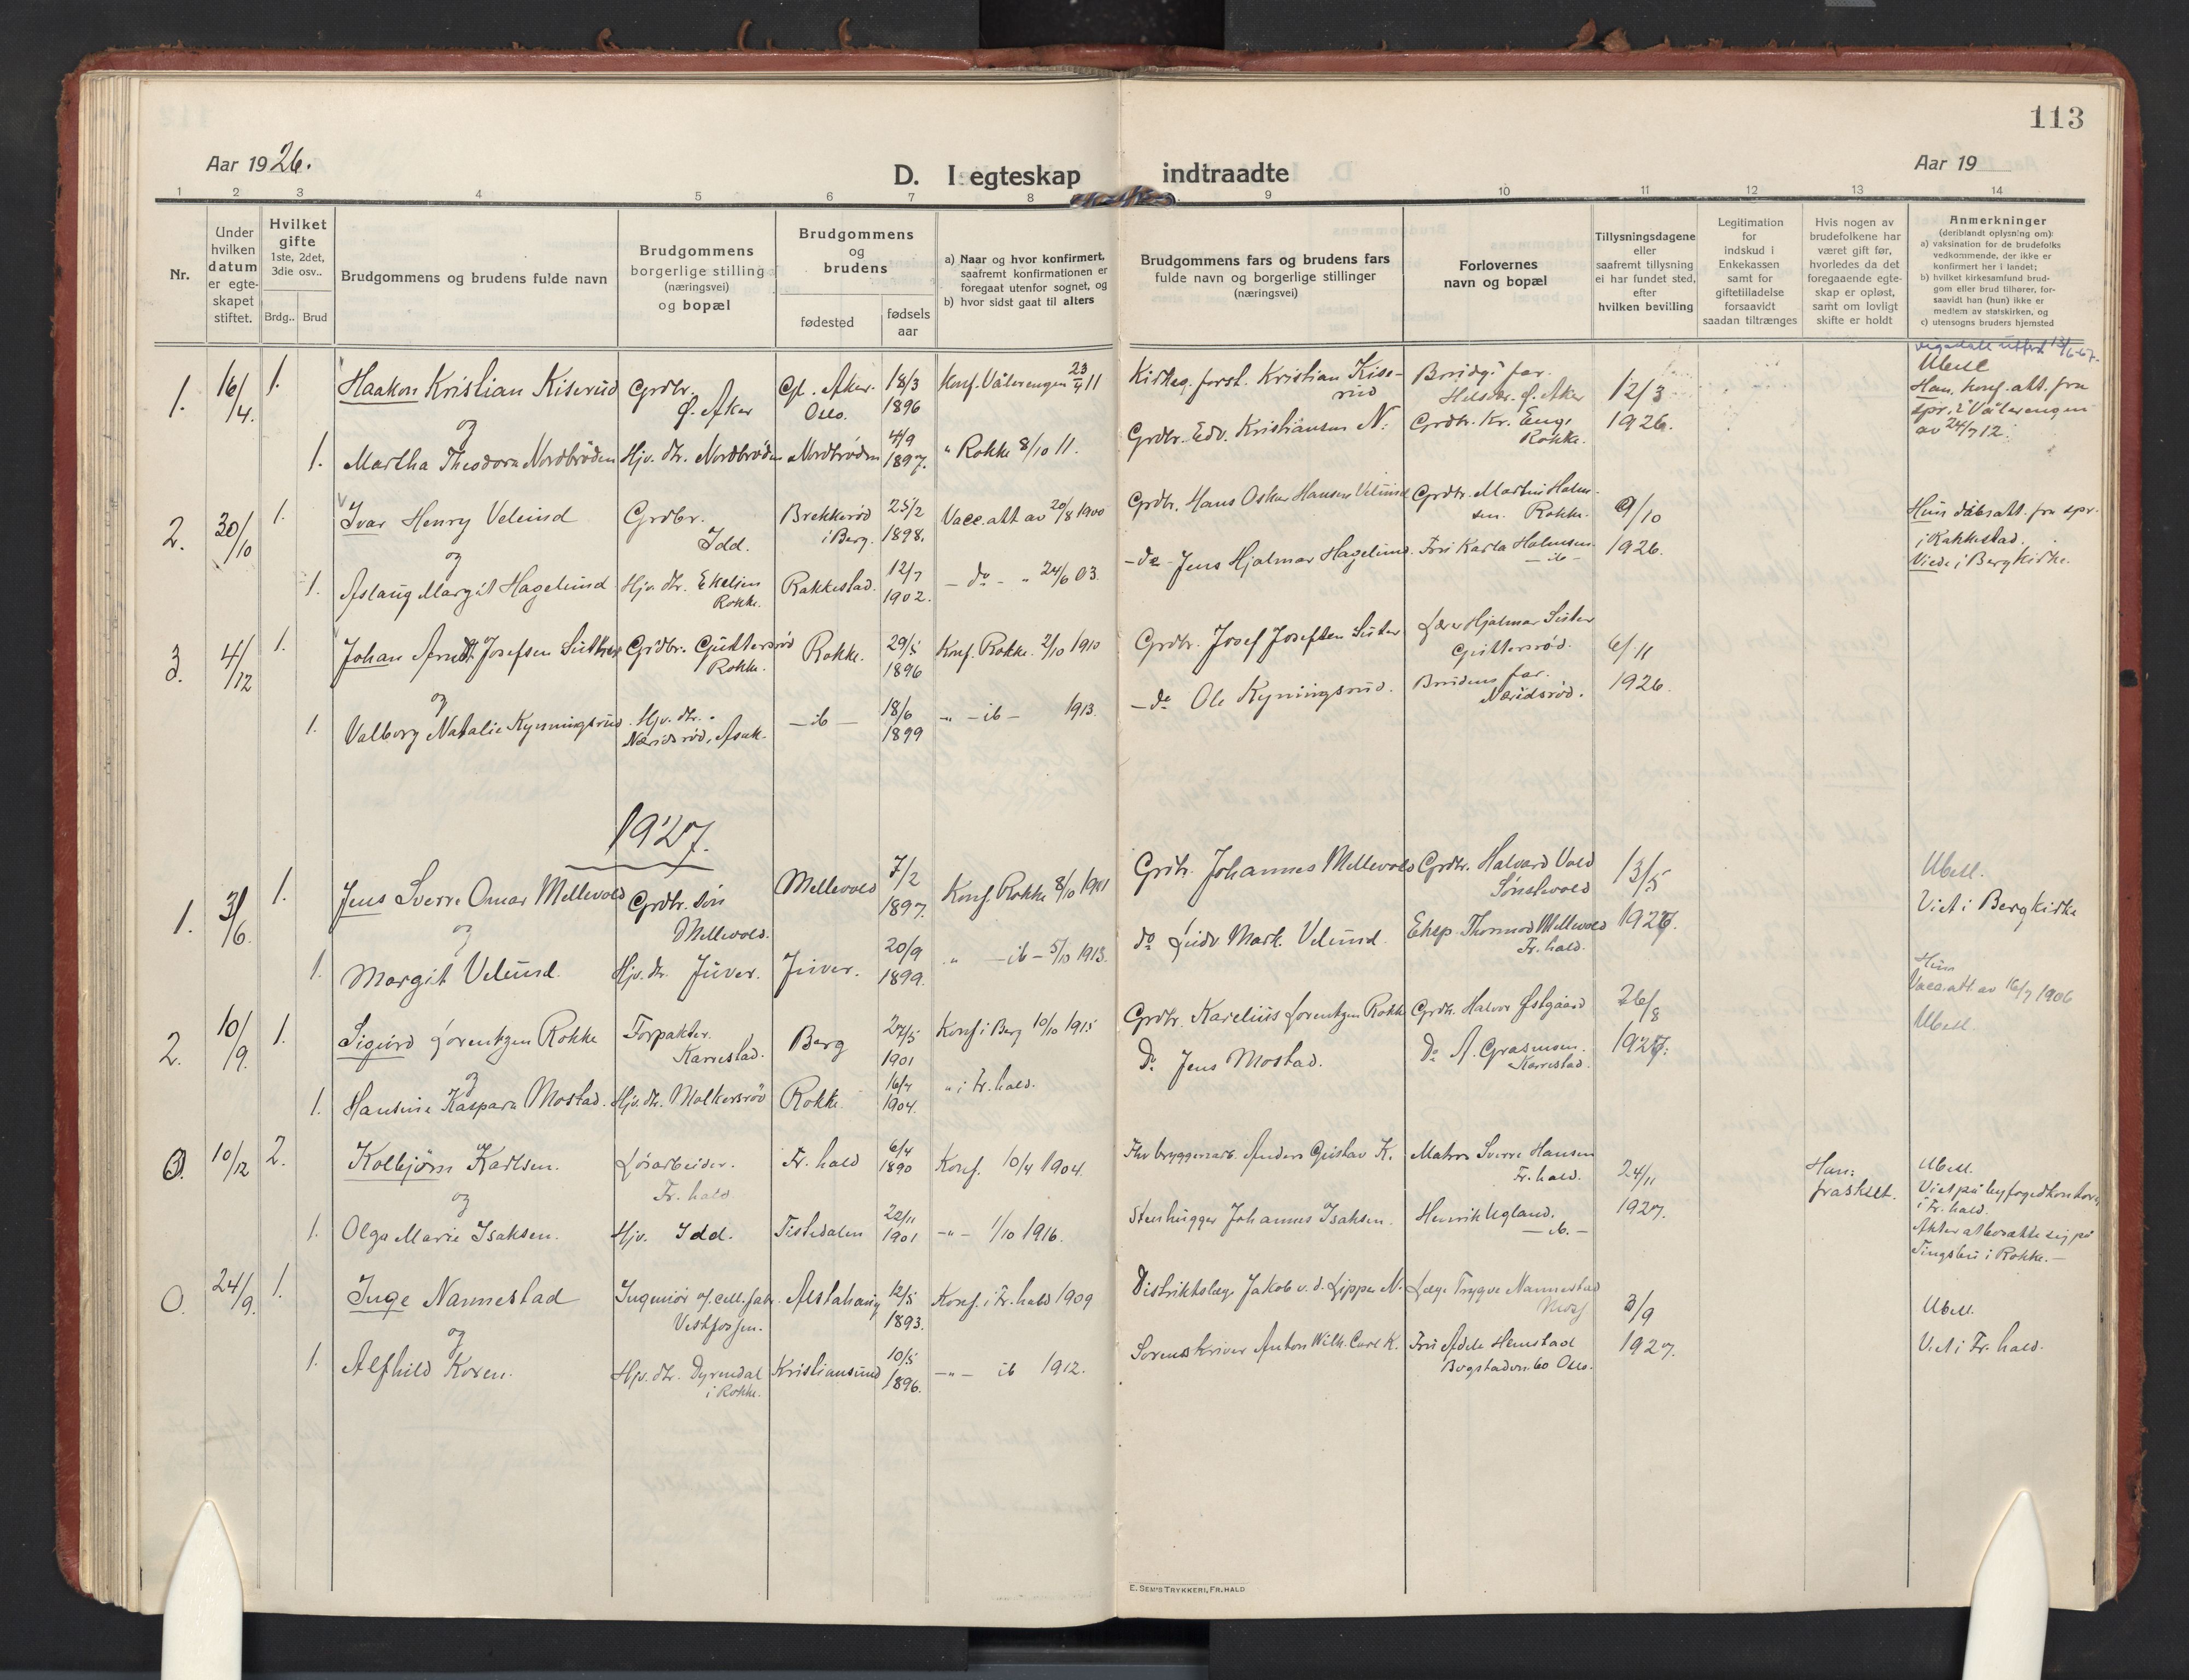 113
Aar 1926.
D. I egteskap indtraadte
Aar 19
1 2 3 4 5 6 7 8 9 10 11 12 13 14
Nr.
Under
hvilken
datum
er egte-
skapet
stiftet.
Hvilket
gifte
1ste, 2det,
3die osv..
Brdg.. Brud
Brudgommens og brudens fulde navn
Brudgommens
borgerlige stilling
(næringsvei)
og bopæl
Brudgommens
og
brudens
fødested
fødsels
aar
a) Naar og hvor konfirmert,
saafremt konfirmationen er
foregaat utenfor sognet, og
b) hvor sidst gaat til alters
Brudgommens fars og brudens fars
fulde navn og borgerlige stillinger
(næringsvei)
Forlovernes
navn og bopæl
Tillysningsdagene
eller
saafremt tillysning
ei har fundet sted,
efter
hvilken bevilling
Legitimation
for
indskud i
Enkekassen
samt for
giftetilladelse
forsaavidt
saadan tiltrænges
Hvis nogen av
brudefolkene har
været gift før,
hvorledes da det
foregaaende egte-
skap er opløst,
samt om lovligt
skifte er holdt
Anmerkninger
(deriblandt oplysning om):
a) vaksination for de brudefolks
vedkommende, der ikke er
konfirmert her i landet;
b) hvilket kirkesamfund brud-
gom eller brud tilhører, for-
saavidt han (hun) ikke er
medlem av statskirken, og
c) utensogns bruders hjemsted
1. 16/4. 1. Haakon Kristian Kiserud Grdbr. Ø. Aker Gl. Aker Oslo. 18/3 1896 Konf. Vålerengen 23/4 11
og
1. Martha Theodora Nordbrøden Hjv. dtr. Nordbrøden Nordbrøden 4/9 1897. " Rokke 8/10 11.
Kirkeg. forst. Kristian Kise-
rud
Brudg.s far.
Ø. Aker
12/3
1926.
Grdbr. Edv. Kristiansen N:
Grdbr. Kr. Eng,
Rokke.
Ubesl.
Han. konf. att. fra
spr. i Vålerengen
av 24/7 12.
2. 30/10 1. Ivar Henry Velund Grdbr. Idd. Brekkerød i Berg. 25/2 1898. Vacc. att av 20/8 1900
og
1. Aslaug Margit Hagelund Hjv. dtr. Ekelien Rokke. Rakkestad. 12/7 1902. - do - " 24/6 03.
Grdbr. Hans Oskar Hansen Velund
Grdbr. Martin Holm-
sen. Rokke.
9/10
1926.
- do - Jens Hjalmar Hagelund.
Fru Karla Holmsen
- ib -
Hun dåbsatt. fra spr.
i Rakkestad.
Viede i Berg kirke.
3. 4/12 1. Johan Arndt Josefsen Sutter Grdbr. Guttersrød Rokke. Rokke. 29/5 1896 Konf. Rokke. 2/10 1910
og
1. Valborg Natalie Kynningsrud Hjv. dtr. Næridsrød, Asak. - ib - 18/6 1899 " - ib - 1913.
Grdbr. Josef Josefsen Suter
Lærer Hjalmar Suter
Guttersrød.
6/11
1926.
- do Ole Kynningsrud.
Brudens far.
Næridsrød.
1927.
1. 3/6. 1. Jens Sverre Omar Mellevold Grdbr. søn Mellevold. Mellevold 7/2 1897. Konf. Rokke 8/10 1911
og
1. Margit Velund. Hjv. dtr. Juver. Juver. 20/9 1899. " - ib - 5/10 1913.
Grdbr. Johannes Mellevold
Grdbr. Halvard Vold
13/5
1927.
do Ludv. Mart. Velund.
Eksp. Thormod Mellevold
Fr. hald.
Ubesl.
Viet i Berg kirke
Hun
Vacc. att. av 16/7 1906
2. 10/9. 1. Sigurd Lorentzen Rokke Forpakter. Karrestad. Berg 27/5 1901 Konf i Berg 10/10 1915
og
1. Hansine Kaspara Mostad. Hjv. dtr. Molkersrød Rokke. 16/7 1904. " i Fr. hald.
Grdbr. Karelius Lorentzen Rokke
Grdbr. Halvor Østgaard
26/8
1927.
Do Jens Mostad.
Do A. Grasmoen.
Karrestad.
Ubesl.
0. 10/12 2. Kolbjørn Karlsen. Løsarbeider. Fr. hald Fr. hald 6/4 1890 Konf. 10/4 1904.
og
1. Olga Marie Isaksen. Hjv. Idd. Tistedalen 22/11 1901 - " - 1/10 1916.
Fhv. bryggeriarb. Anders Gustav K.
Matros Sverre Hansen
Fr. hald.
24/11
1927.
Stenhugger Johannes Isaksen.
Henrik Ugland.
- ib. -
Han:
fraskilt.
Ubesl.
Viet på byfogedkontoret
i Fr. hald.
Akter at bosætte sig på
Tingsbu i Rokke. -
0. 24/9. 1. Inge Nannestad Ingeniør v/ cell. fabr. Vestfossen. Alstahaug 12/5 1893. Konf. i Fr. hald 1909
og
1. Alfhild Koren. Hjv. dtr. Dyrendal i Rokke. Kristiansund 10/5 1896. - " - ib 1912.
Distriktslæge Jakob v. d. Lippe N.
Læge Trygve Nannestad
Moss
3/9
1927.
Sorenskriver Anton Wilh. Carl K.
Fru Adele Henstad
Bogstadvn. 60 Oslo.
Ubesl.
Viet i Fr. hald.
E. SEM'S TRYKKERI, FR.HALD